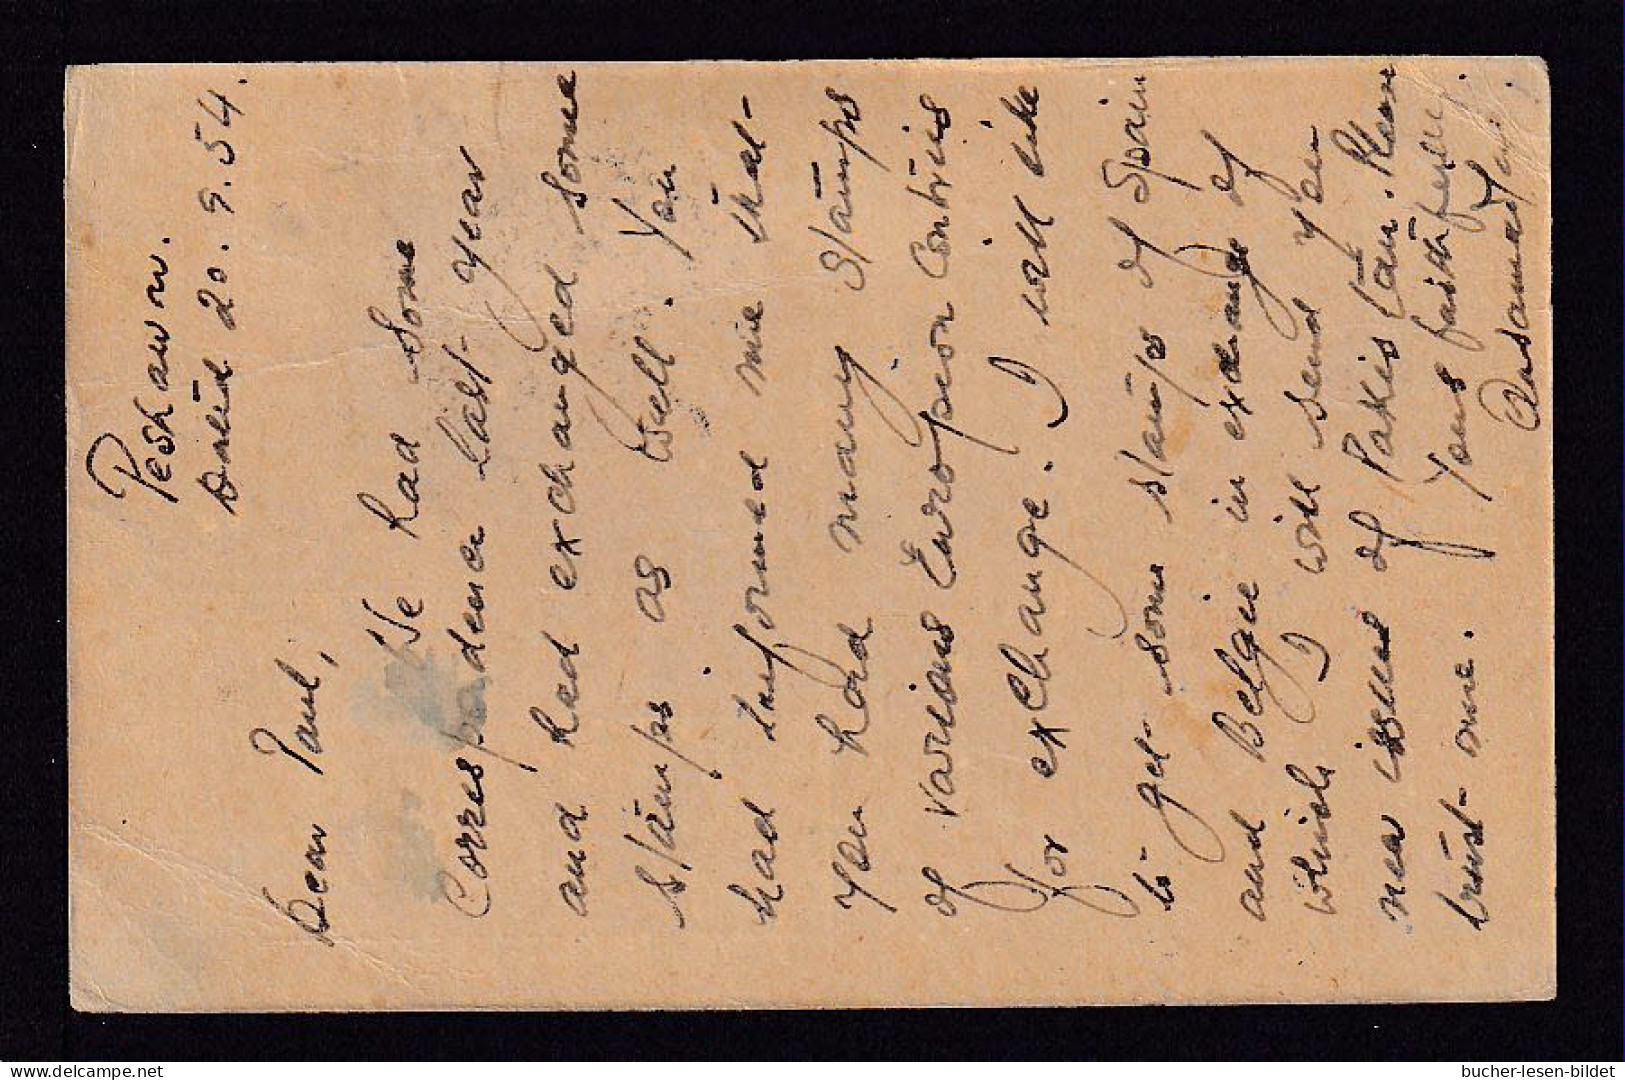 Peshawar.
Dated 20.9.54.
Dear Paul,
We had some
Correspodence last-year
and had exchanged some
stamps as well. You
had informed me that-
you had many stamps
of various Europion Contries
for exchange. I will like
to get-some stamps of Spain
and Belgie in exchange of
which I will send you
new issues of Pakistan. Please
trust-me. Yours faithfully.
bucher-lesen-bildet